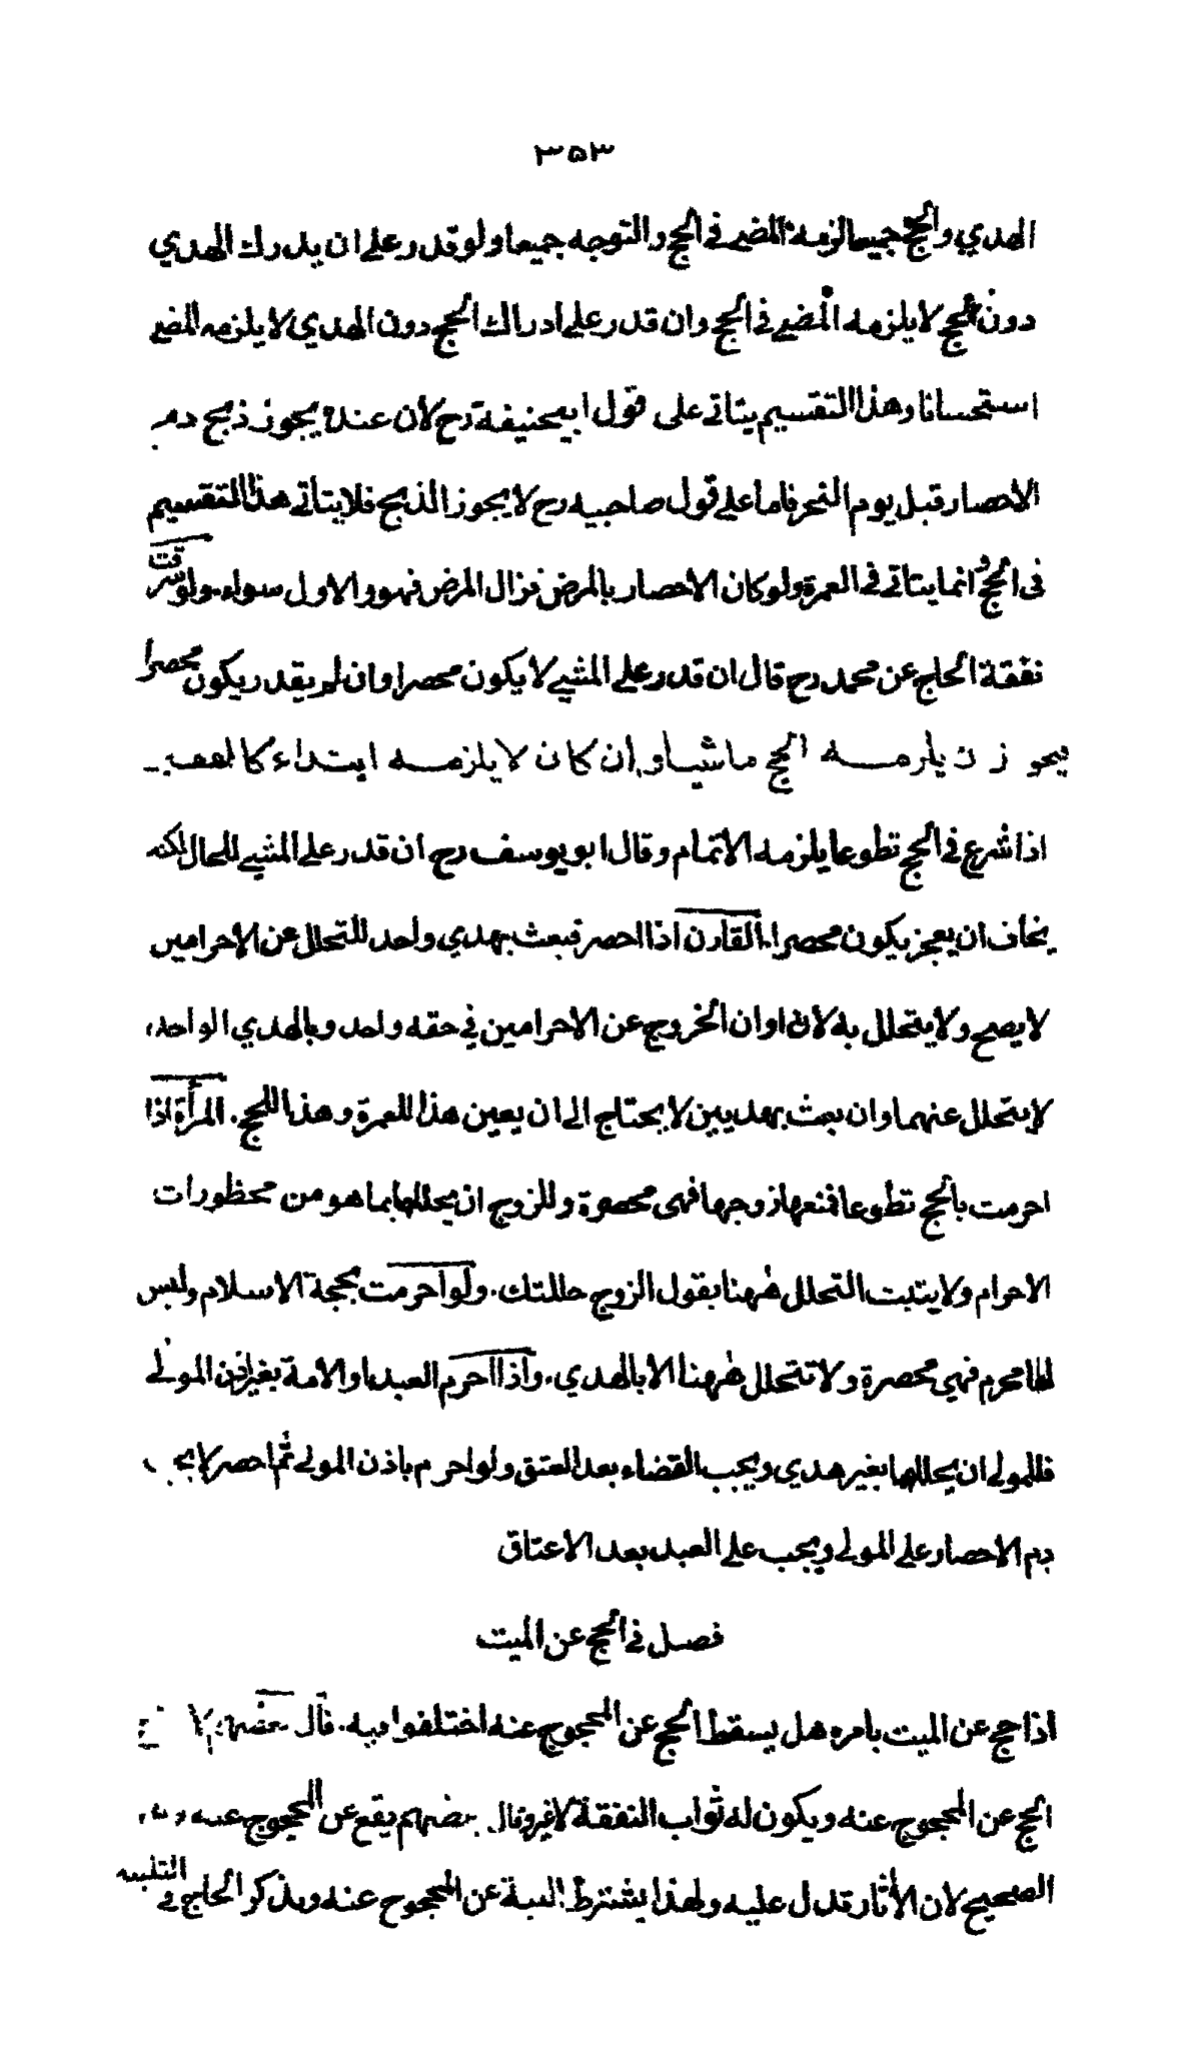 ٣٥٣
الهدي والحج جميعا لزمه المضي في الحج والتوجه جميعا ولو قدر على ان يدرك الهدي
دون الحج لا يلزمه المضي في الحج وان قدر على ادراك الحج دون الهدي لا يلزمه المضي
استحسانا وهذا التقسيم يتاتى على قول ابيحنيفة رح لان عنده يجوز ذبح دم
الاحصار قبل يوم النحر فاما على قول صاحبيه رح لا يجوز الذبح فلا يتاتى هذا التقسيم
في الحج وانما يتاتى في العمرة ولو كان الاحصار بالمرض فزال المرض فهو والاول سواء. ولو سرقت
نفقة الحاج عن محمد رح قال ان قدر على المشي لا يكون محصرا وان لم يقدر يكون محصرا
يجوز ن يلزمه الحج ماشيا وان كان لا يلزمه ابتداء كالفقير
اذا شرع في الحج تطوعا يلزمه الاتمام وقال ابو يوسف رح ان قدر على المشي للحال لكنه
يخاف ان يعجز يكون محصرا. القارن اذا احصر فبعث بهدي واحد للتحلل عن الاحرامين
لا يصح ولا يتحلل به لان اوان الخروج عن الاحرامين في حقه واحد وبالهدي الواحد
لا يتحلل عنهما وان بعث بهديين لا يحتاج الى ان يعين هذا للعمرة وهذا للحج. المرأة اذا
احرمت بالحج تطوعا فمنعها زوجها فهي محصرة وللزوج ان يحللها بما هو من محظورات
الاحرام ولا يثبت التحلل ههنا بقول الزوج حللتك. ولو احرمت بحجة الاسلام وليس
لها محرم فهي محصرة ولا تتحلل ههنا الا بالهدي. واذا احرم العبد او الامة بغير اذن المولى
فللمولى ان يحللها بغير هدي ويجب القضاء بعد العتق ولو احرم باذن المولى ثم احصر لا يجب
دم الاحصار على المولى ويجب على العبد بعد الاعتاق
فصل في الحج عن الميت
اذا حج عن الميت بامره هل يسقط الحج عن المحجوج عنه اختلفوا فيه. قال بعضهم لا
الحج عن المحجوج عنه ويكون له ثواب النفقة لا غير وقال بعضهم يقع عن المحجوج عنه
الصحيح لان الأثار قد دل عليه ولهذا يشترط النية عن المحجوج عنه ويذكر الحاج في التلبية